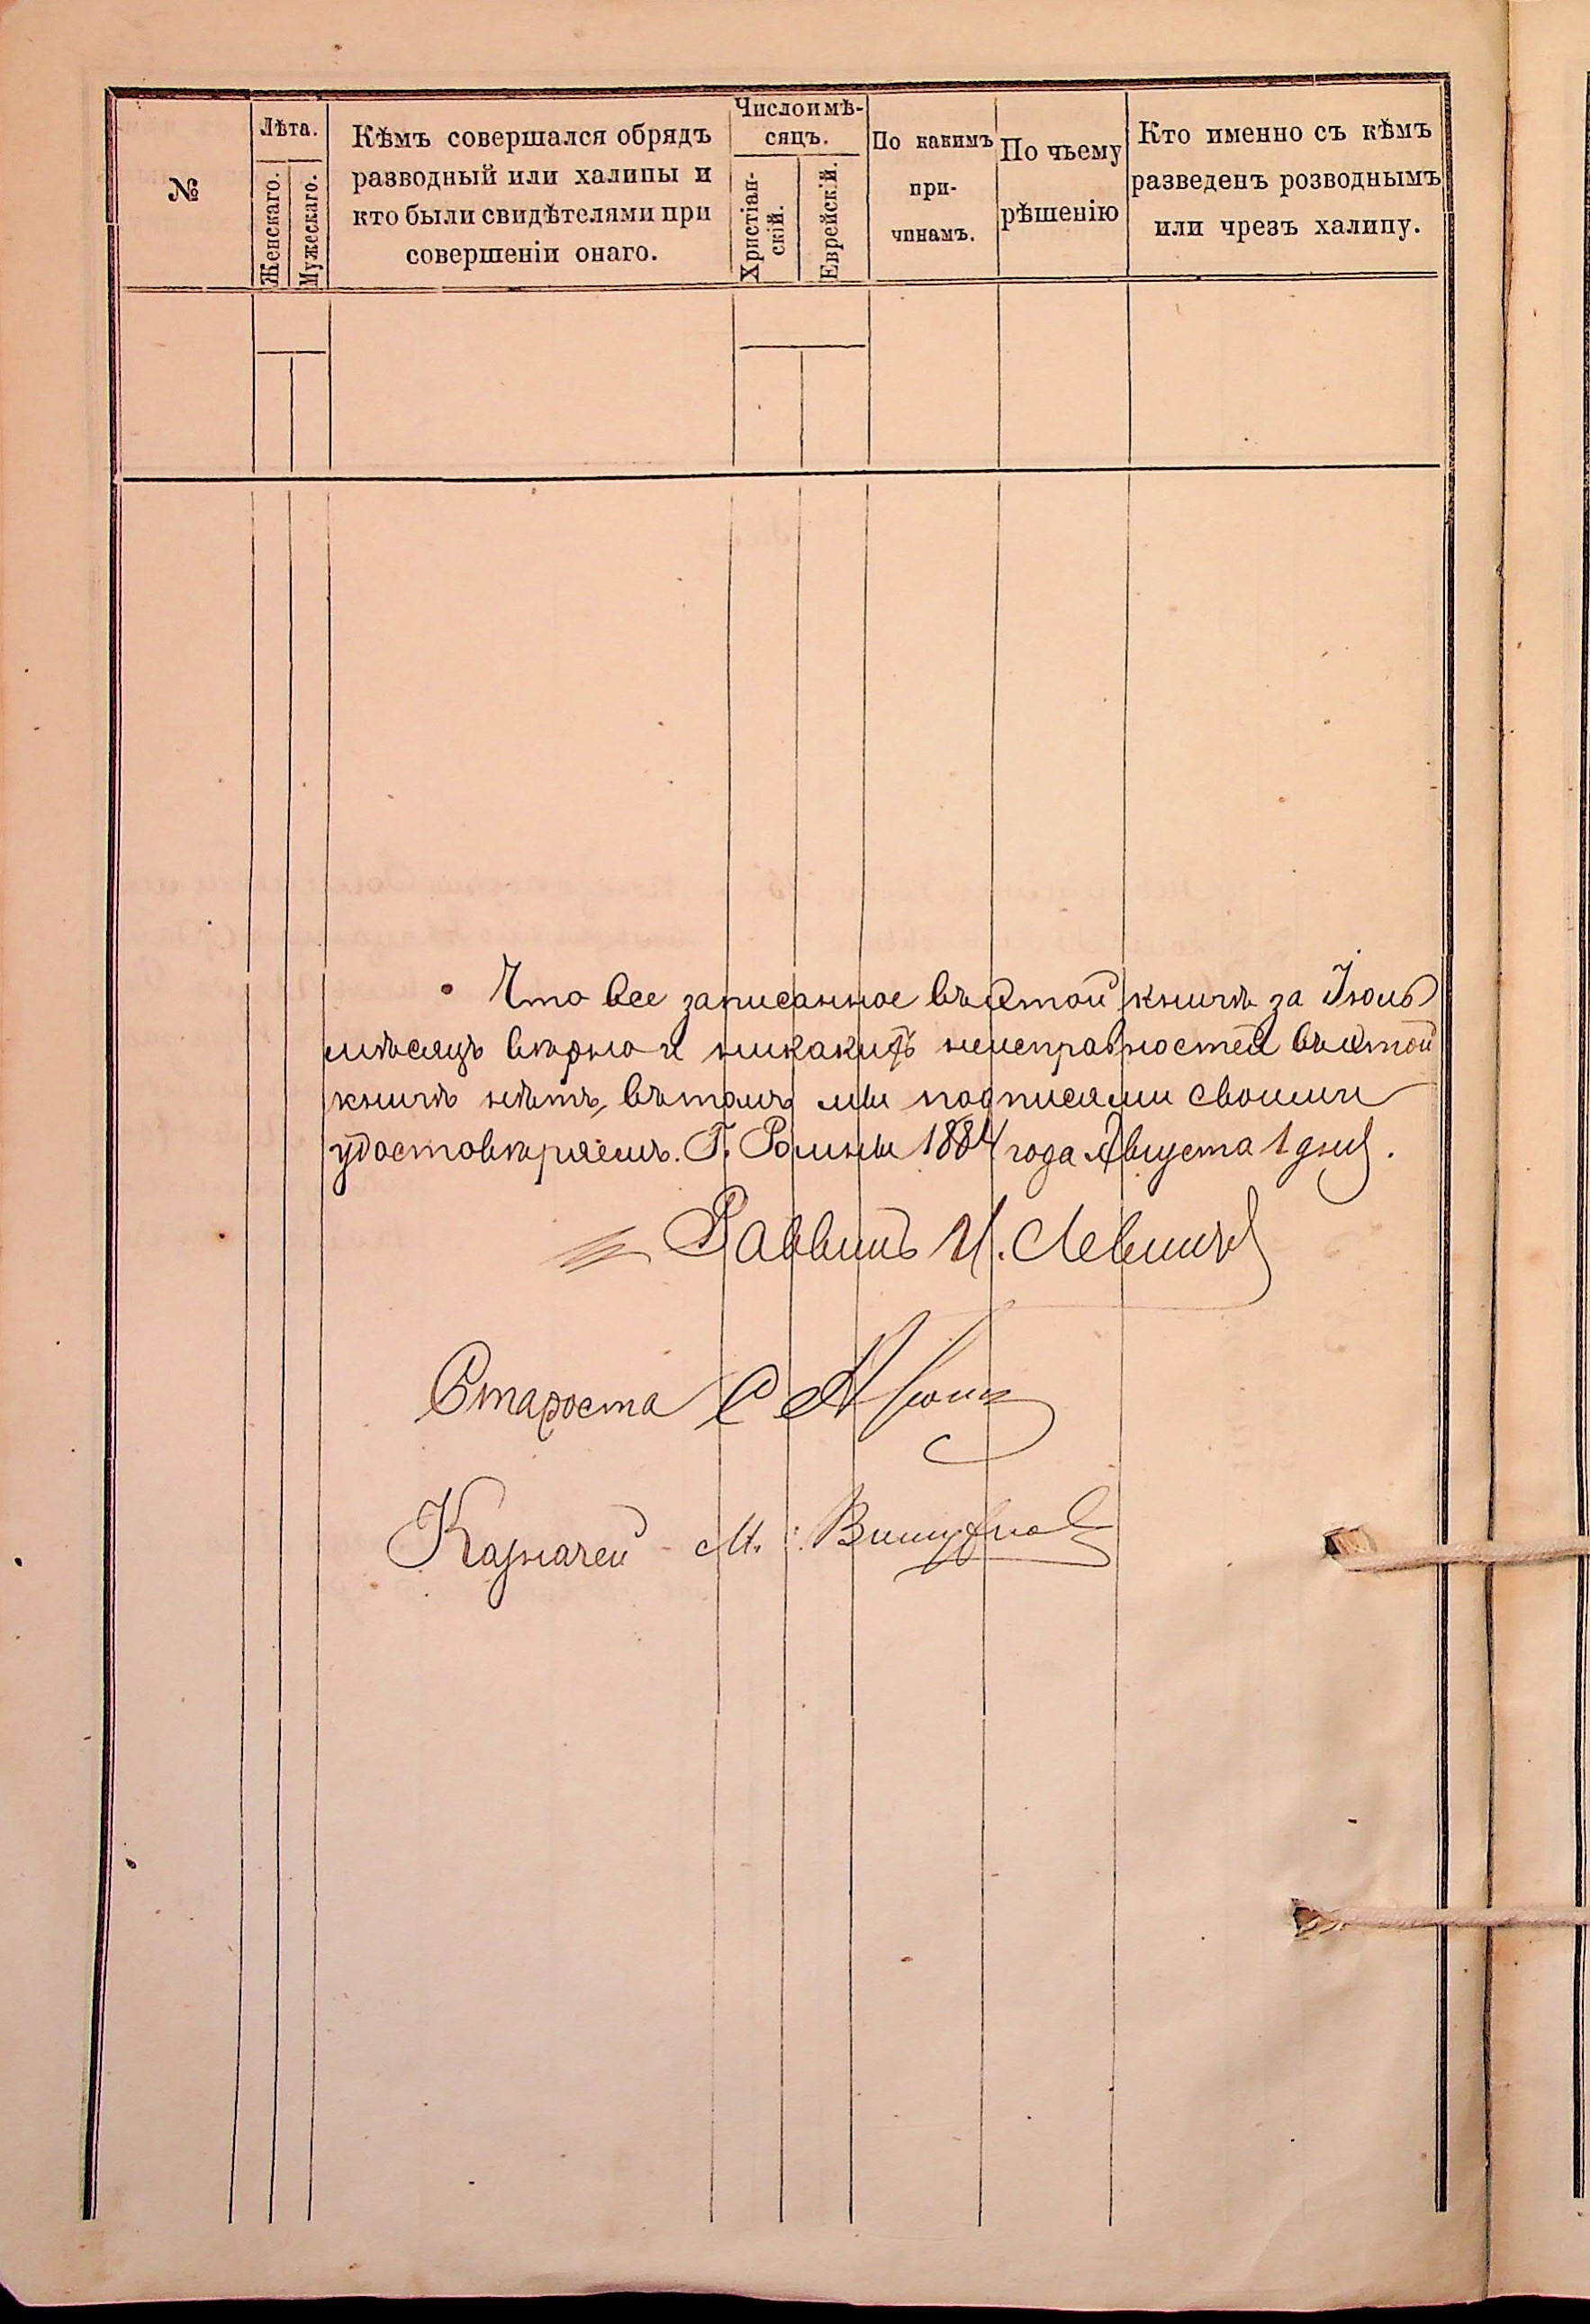 №
Лѣта.
Женскаго.
Мужескаго.
Кѣмъ совершался обрядъ
разводный или халипы и
кто были свидѣтелями при
совершеніи онаго.
Число и мѣ-
сяцъ.
Христіан-
скій.
Еврейскій.
По какимъ
при-
чинамъ.
По чьему
рѣшенію
Кто именно съ кѣмъ
разведенъ розводнымъ
или чрезъ халипу.
Что все записанное въ этой книгѣ за Іюль
мѣсяцъ вѣрно и никакихъ неисправностей въ этой
книгѣ нѣтъ, въ томъ мы подписями своими
удостовѣряемъ. Г. Ромны 1884 года Августа 1 дня.
Раввинъ И.
Староста С
Казначей М.